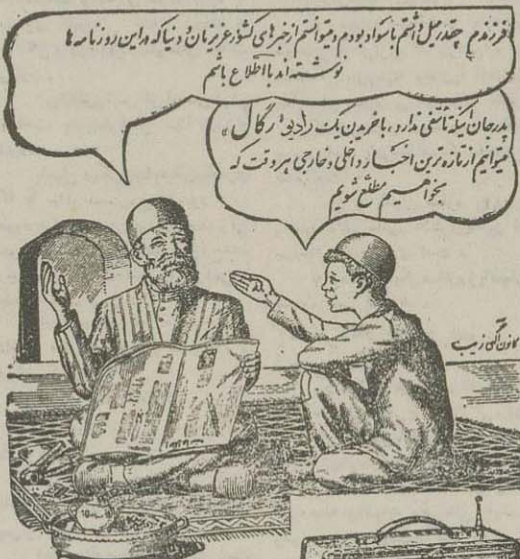 فرزندم چقدر میل داشتم باسواد بودم و میتوانستم از خبرهای کشور عزیزمان و دنیا که در این روزنامه ها
نوشته اند با اطلاع باشم
پدرجان اینکه تأسفی ندارد، با خریدن یک رادیو «رگال»
میتوانیم از تازه ترین اخبار داخلی و خارجی هر وقت که
بخواهیم مطلع شویم
کانون آگهی زیب